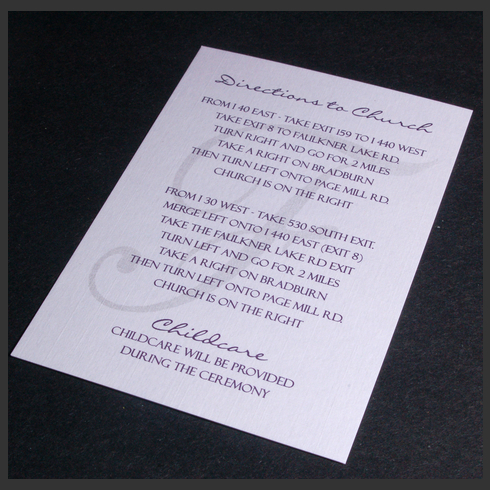 Directions to Church
FROM I 40 EAST - TAKE EXIT 159 TO I 440 WEST
TAKE EXIT 8 TO FAULKNER LAKE RD.
TURN RIGHT AND GO FOR 2 MILES
TAKE A RIGHT ON BRADBURN
THEN TURN LEFT ONTO PAGE MILL RD.
CHURCH IS ON THE RIGHT
FROM I 30 WEST - TAKE 530 SOUTH EXIT.
MERGE LEFT ONTO I 440 EAST (EXIT 8)
TAKE THE FAULKNER LAKE RD EXIT
TURN LEFT AND GO FOR 2 MILES
TAKE A RIGHT ON BRADBURN
THEN TURN LEFT ONTO PAGE MILL RD.
CHURCH IS ON THE RIGHT
Childcare
CHILDCARE WILL BE PROVIDED
DURING THE CEREMONY